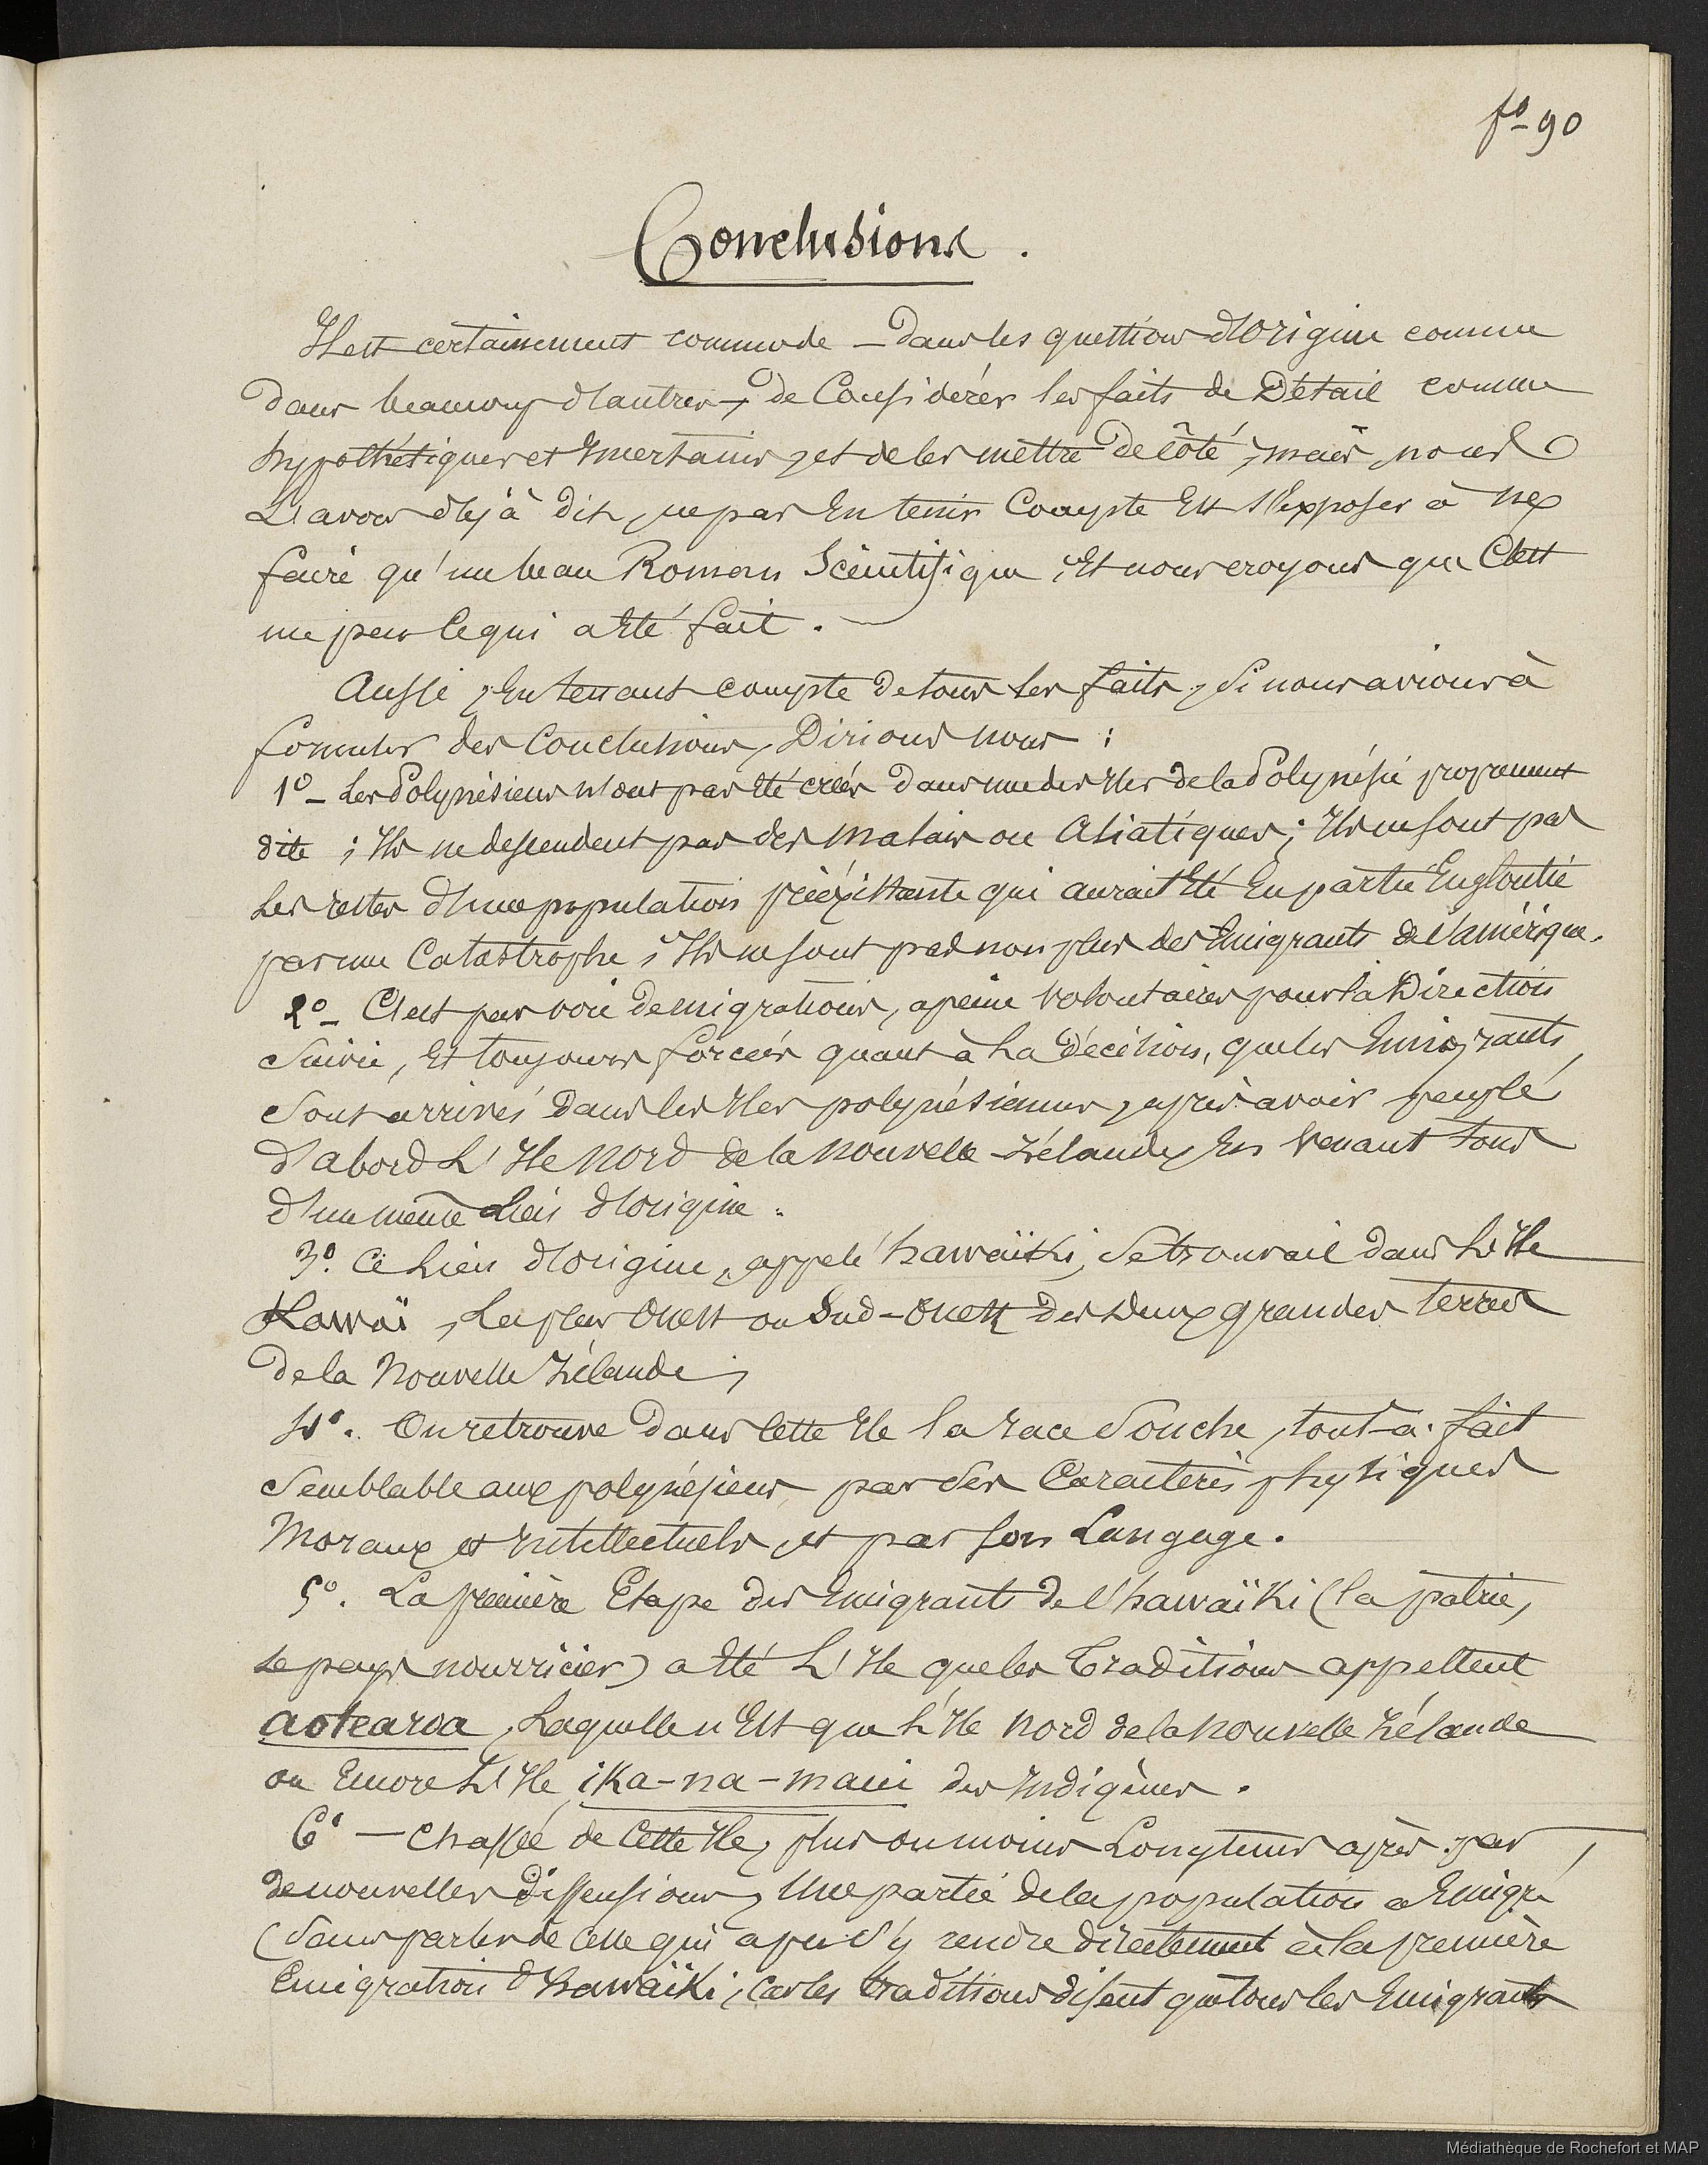 fo 90
Conclusions.
Il est certainement commode – dans les questions d'origine comme
dans beaucoup d'autres –, de Considérer les faits de Détail comme
hypothétiques et Incertains, et de les mettre de côté ; mais, nous
L'avons déjà dit, ne pas En tenir Compte Est s'exposer à ne
faire qu'un beau Roman Scientifique ; Et nous croyons que C'est
un peu Ce qui a Eté fait. —
Aussi, En tenant compte de tous les faits, Si nous avions à
formuler des Conclusions, Dirions nous :
1o – Les Polynésiens n'ont pas Eté créés Dans une des Iles de la Polynésie proprement
dite ; Ils ne descendent pas des Malais ou Asiatiques ; Ils ne sont pas
Les restes d'une population préexistante qui aurait Eté En partie Engloutie
par une Catastrophe ; Ils ne sont pas non plus des Emigrants de l'amérique.
2o – C'est par voie de migrations, a peine Volontaires pour la Direction
Suivie, Et toujours forcées quant à La Décision, que les Emigrants
Sont arrivés Dans les Iles polynésiennes, après avoir peuplé
d'abord L'Ile Nord de la Nouvelle-Zélande, En Venant tous
d'un même Lieu d'origine.
3o. Ce Lieu d'origine, appelé hawaïki, Se trouvait dans L'Ile
Kawaï, La plus Ouest ou Sud-Ouest des Deux grandes terres
de la Nouvelle Zélande ;
4o. On retrouve Dans Cette Ile la race Souche, tout-a-fait
Semblable aux polynésiens par Ses Caractères physiques
Moraux et Intellectuels, et par Son Langage.
5o. La première Etape des Emigrants de l'hawaïki (la patrie,
Le pays nourricier) a Eté L'Ile que les Traditions appellent
aotearoa, Laquelle n'Est que L'Ile Nord de la Nouvelle Zélande
ou Encore L'Ile ika-na-maui des Indigènes.
6o – Chassée de Cette Ile, plus ou moins Longtems après par
de nouvelles Dissensions, Une partie de la population a Emigré
(Sans parler de Celle qui a pu S'y rendre directement à la première
Emigration d'hawaïki, Car les traditions disent que tous les Emigrants
Médiathèque de Rochefort et MAP